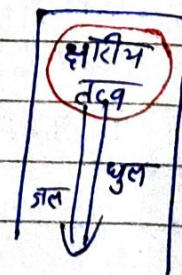 क्षारीय
तत्व
जल घुल